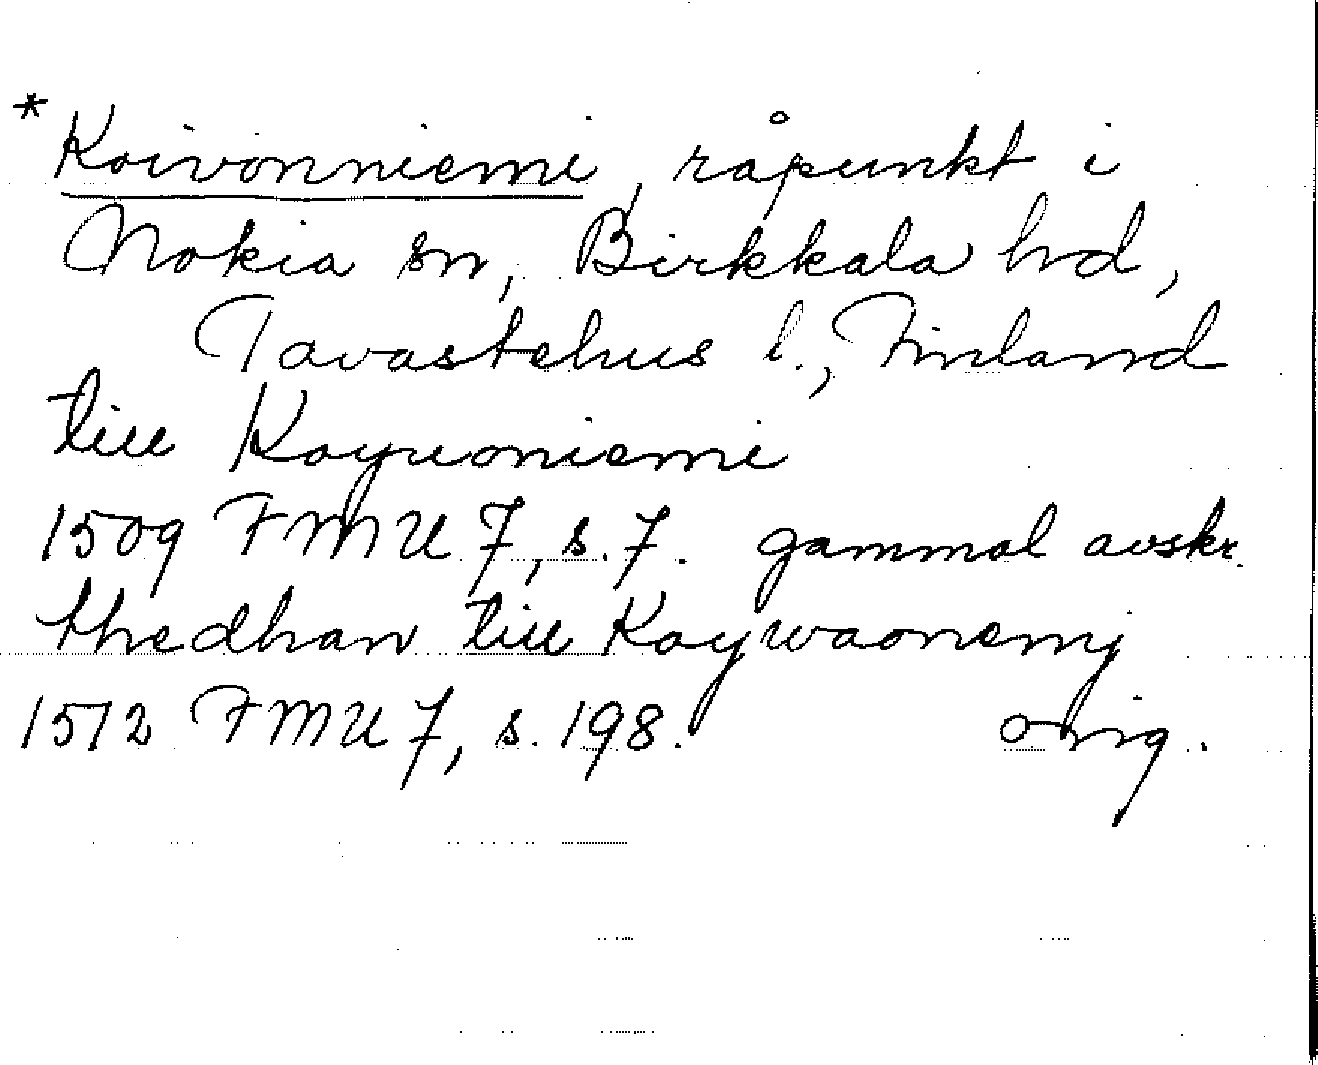 *Koivonniemi, råpunkt i
Nokia sn, Birkkala hd,
Tavastehus l., Finland
till Koyuoniemi
1509 FMU 7, s. 7. gammal avskr.
thedhan till Koywaonemj
1512 FMU 7, s. 198. orig.